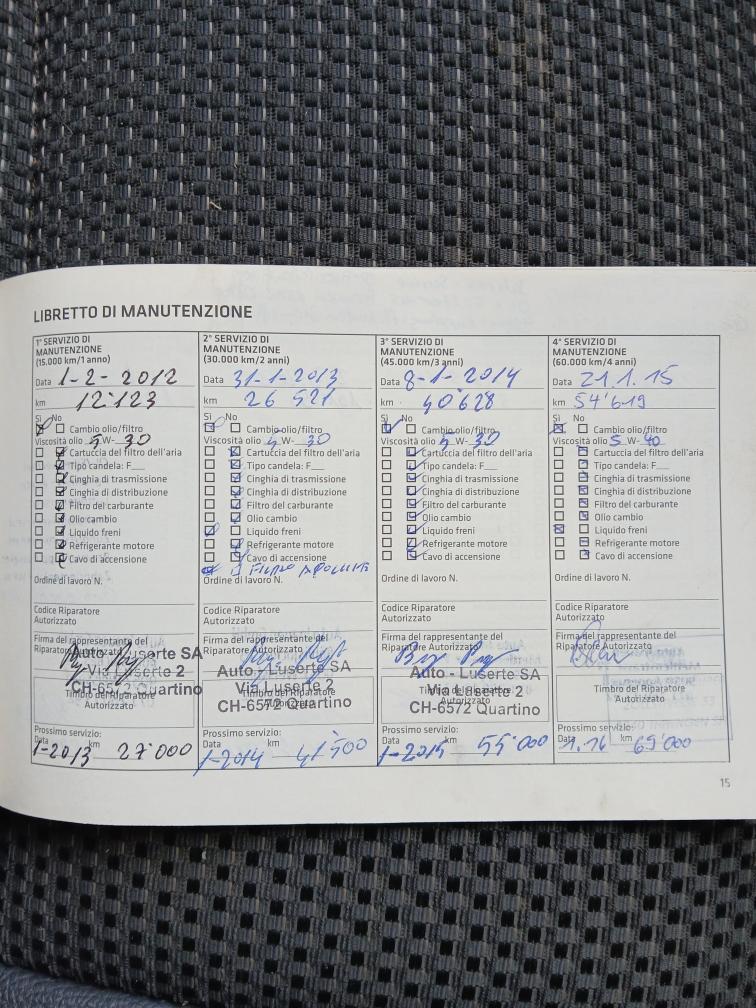 LIBRETTO DI MANUTENZIONE
1° SERVIZIO DI
MANUTENZIONE
(15.000 km/1 anno)
Data 1-2-2012
km 12'123
Sì No
Cambio olio/filtro
Viscosità olio 5 W- 30
Cartuccia del filtro dell'aria
Tipo candela: F
Cinghia di trasmissione
Cinghia di distribuzione
Filtro del carburante
Olio cambio
Liquido freni
Refrigerante motore
Cavo di accensione
Ordine di lavoro N.
Codice Riparatore
Autorizzato
Firma del rappresentante del
Riparatore Autorizzato
Auto - Luserte SA
Via Luserte 2
CH-6572 Quartino
Timbro del Riparatore
Autorizzato
Prossimo servizio:
Data km
1-2013 27'000
2° SERVIZIO DI
MANUTENZIONE
(30.000 km/2 anni)
Data 31-1-2013
km 26 521
Sì No
Cambio olio/filtro
Viscosità olio 5 W- 30
Cartuccia del filtro dell'aria
Tipo candela: F
Cinghia di trasmissione
Cinghia di distribuzione
Filtro del carburante
Olio cambio
Liquido freni
Refrigerante motore
Cavo di accensione
Filtro
Ordine di lavoro N.
Codice Riparatore
Autorizzato
Firma del rappresentante del
Riparatore Autorizzato
Auto - Luserte SA
Via Luserte 2
CH-6572 Quartino
Timbro del Riparatore
Autorizzato
Prossimo servizio:
Data km
1-2014 41'500
3° SERVIZIO DI
MANUTENZIONE
(45.000 km/3 anni)
Data 8-1-2014
km 40'628
Sì No
Cambio olio/filtro
Viscosità olio 5 W- 30
Cartuccia del filtro dell'aria
Tipo candela: F
Cinghia di trasmissione
Cinghia di distribuzione
Filtro del carburante
Olio cambio
Liquido freni
Refrigerante motore
Cavo di accensione
Ordine di lavoro N.
Codice Riparatore
Autorizzato
Firma del rappresentante del
Riparatore Autorizzato
Auto - Luserte SA
Via Luserte 2
CH-6572 Quartino
Timbro del Riparatore
Autorizzato
Prossimo servizio:
Data km
1-2015 55'000
4° SERVIZIO DI
MANUTENZIONE
(60.000 km/4 anni)
Data 21.1.15
km 54'619
Sì No
Cambio olio/filtro
Viscosità olio 5 W- 40
Cartuccia del filtro dell'aria
Tipo candela: F
Cinghia di trasmissione
Cinghia di distribuzione
Filtro del carburante
Olio cambio
Liquido freni
Refrigerante motore
Cavo di accensione
Ordine di lavoro N.
Codice Riparatore
Autorizzato
Firma del rappresentante del
Riparatore Autorizzato
Timbro del Riparatore
Autorizzato
Prossimo servizio:
Data 1.16 km 69'000
15